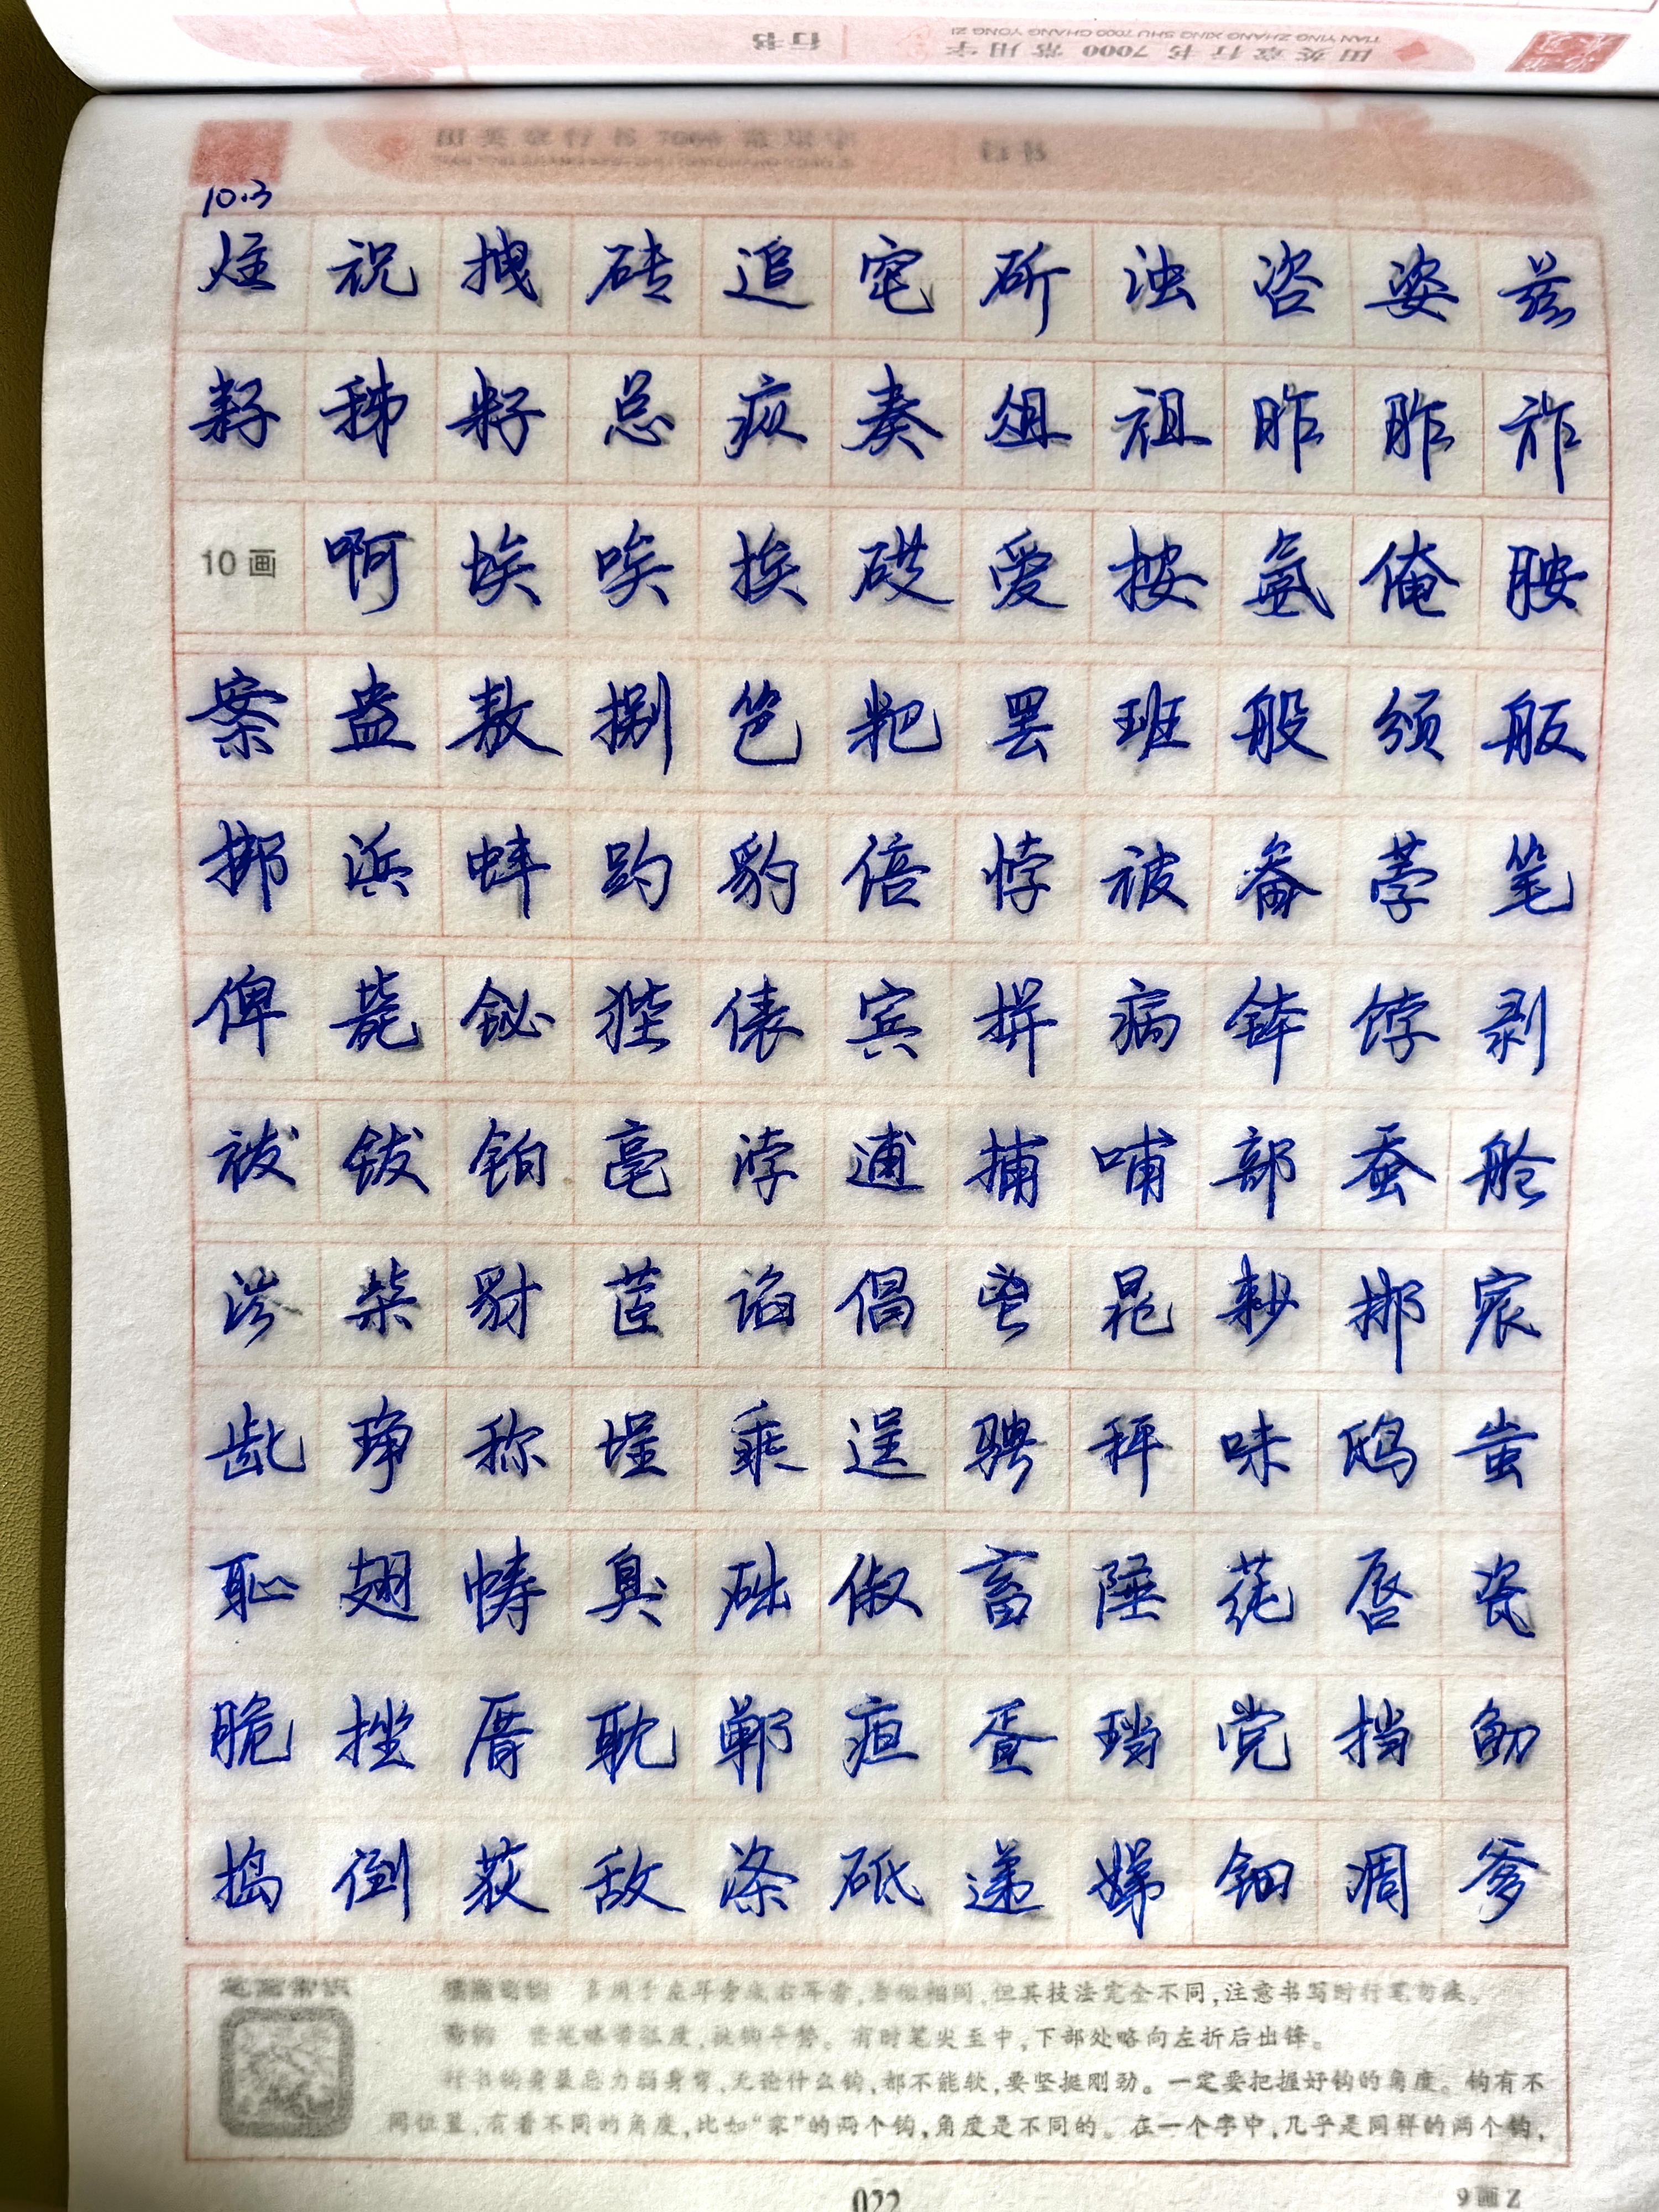 田英章行书 7000 常用字 行书
TIAN YING ZHANG XING SHU 7000 CHANG YONG ZI
田英章行书 7000 常用字 行书
10.3
炷 祝 拽 砖 追 窀 斫 浊 咨 姿 兹
耔 秭 籽 总 奏 俎 祖 昨 胙 祚
10画 啊 埃 唉 挨 砹 爱 按 氨 俺 胺
案 盎 敖 捌 笆 粑 罢 班 般 颁 舨
梆 浜 蚌 趵 豹 倍 悖 被 备 荸 笔
俾 毙 铋 狴 俵 宾 栟 病 钵 饽 剥
袯 钹 铂 亳 浡 逋 捕 哺 部 蚕 舱
涔 柴 豺 茝 谄 倡 鬯 晁 耖 郴 宸
龀 琤 称 埕 乘 逞 骋 秤 哧 鸱 蚩
耻 翅 帱 臭 础 俶 畜 陲 莼 唇 瓷
脆 挫 厝 耽 郸 疸 蛋 珰 党 挡
捣 倒 荻 敌 涤 砥 递 娣 钿 凋 爹
笔画常识
多用于左耳旁或右耳旁,看似相同,但其技法完全不同,注意书写时行笔勿疾。
有时笔尖至中,下部处略向左折后出锋。
无论什么钩,都不能软,要坚挺刚劲。一定要把握好钩的角度。钩有不
同位置,有着不同的角度,比如“家”的两个钩,角度是不同的。在一个字中,几乎是同样的两个钩,
022
9画Z